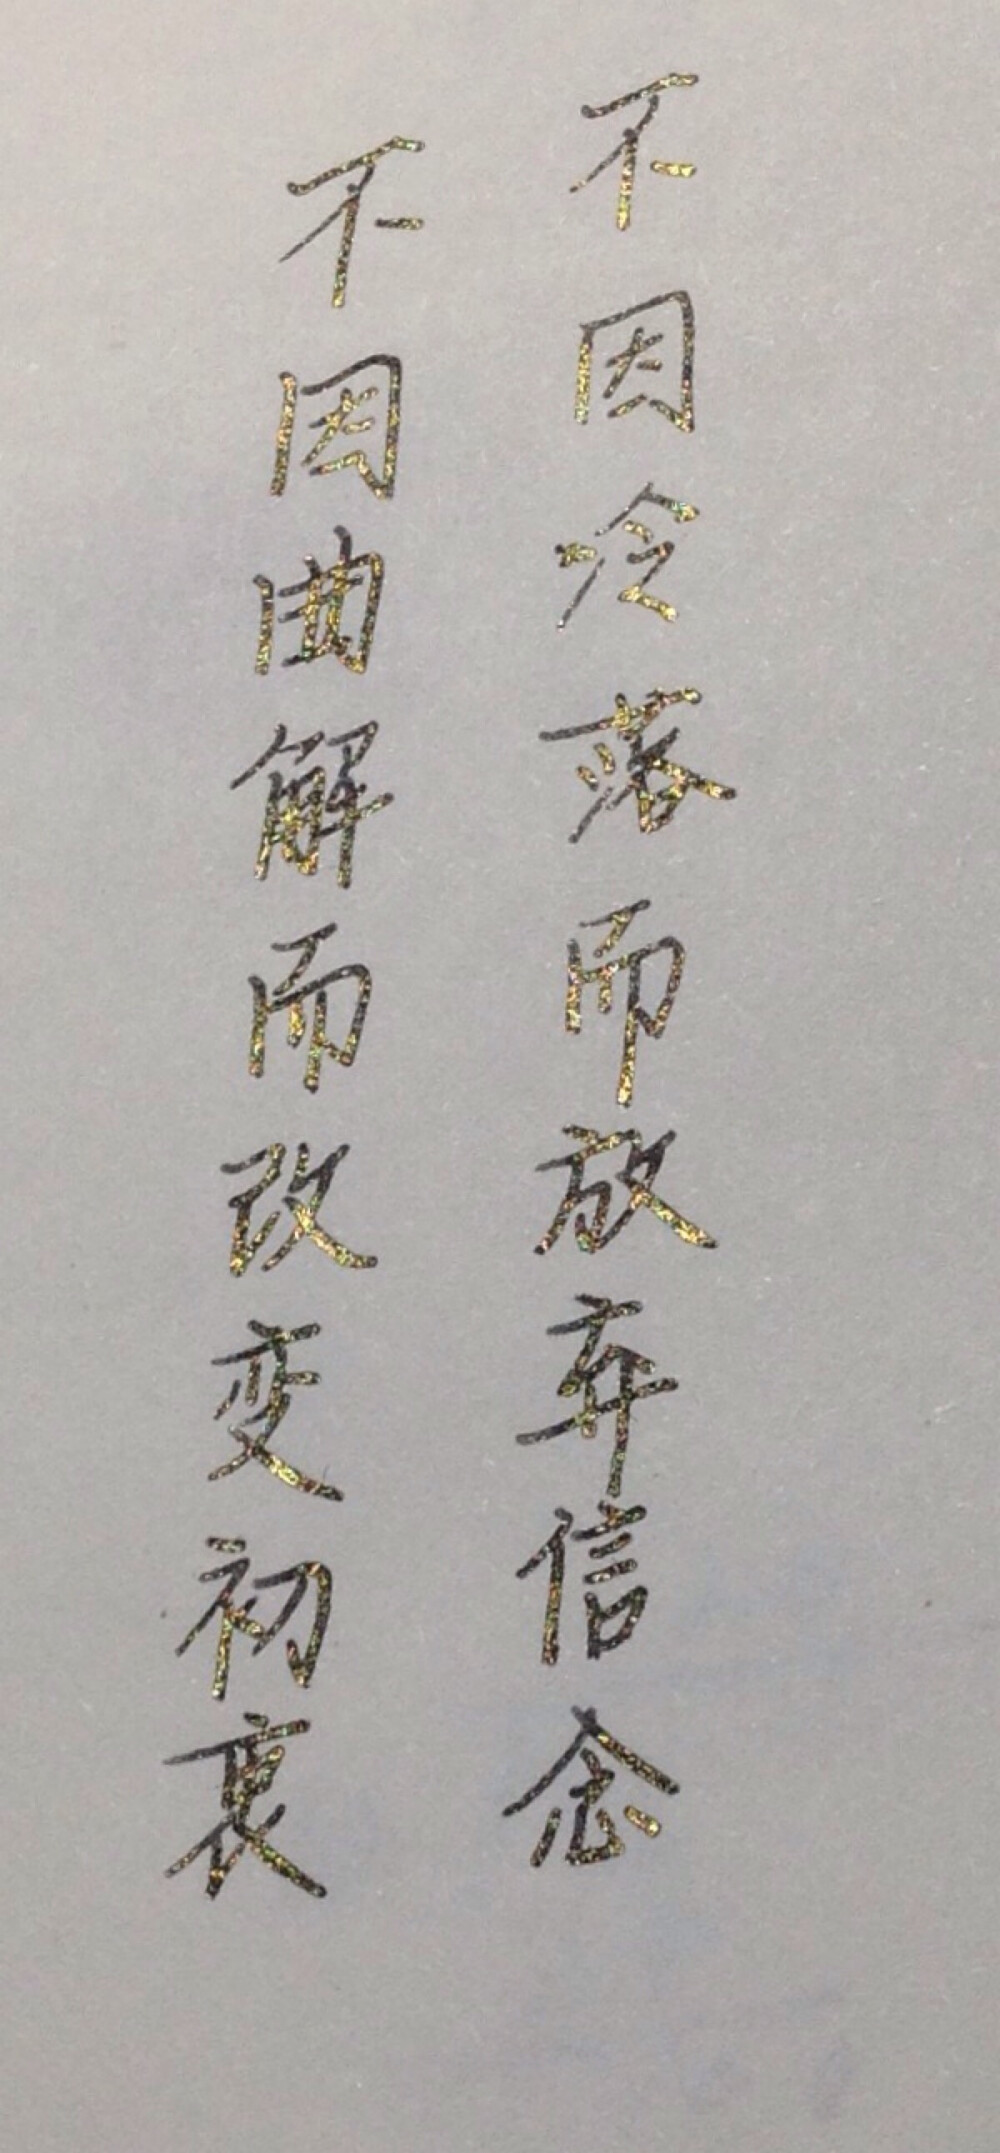 不因冷落而放弃信念
不因曲解而改变初衷